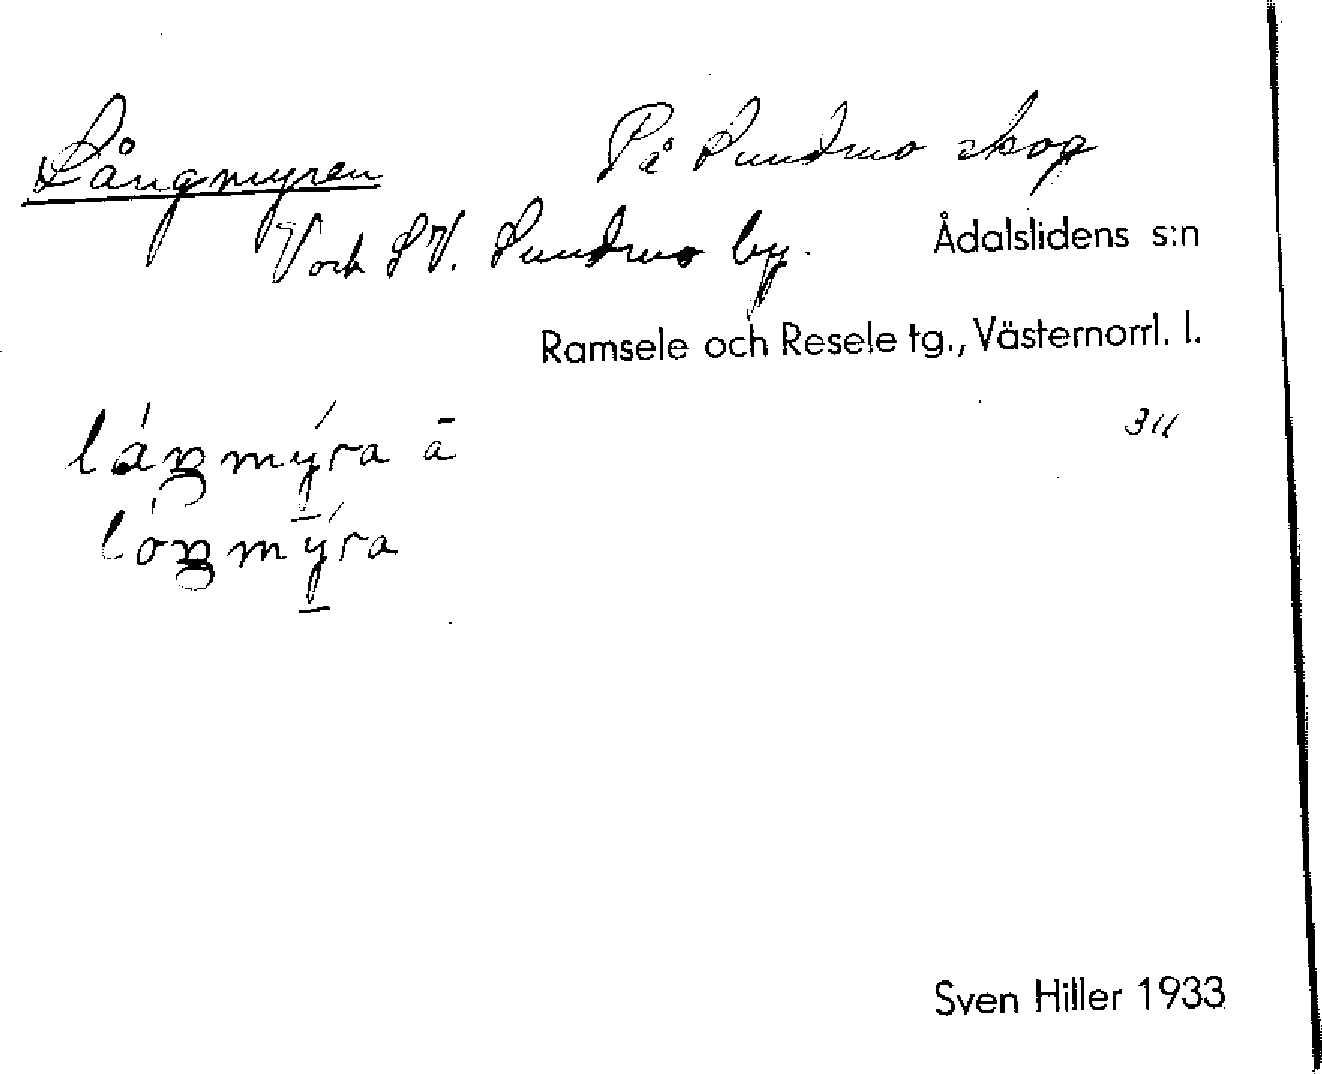 Långmyren På Sundmo skog
V och SV. Sundmo by. Ådalslidens s:n
Ramsele och Resele tg., Västernorrl. l.
311
láŋmýra ā
lóŋmýra
Sven Hiller 1933